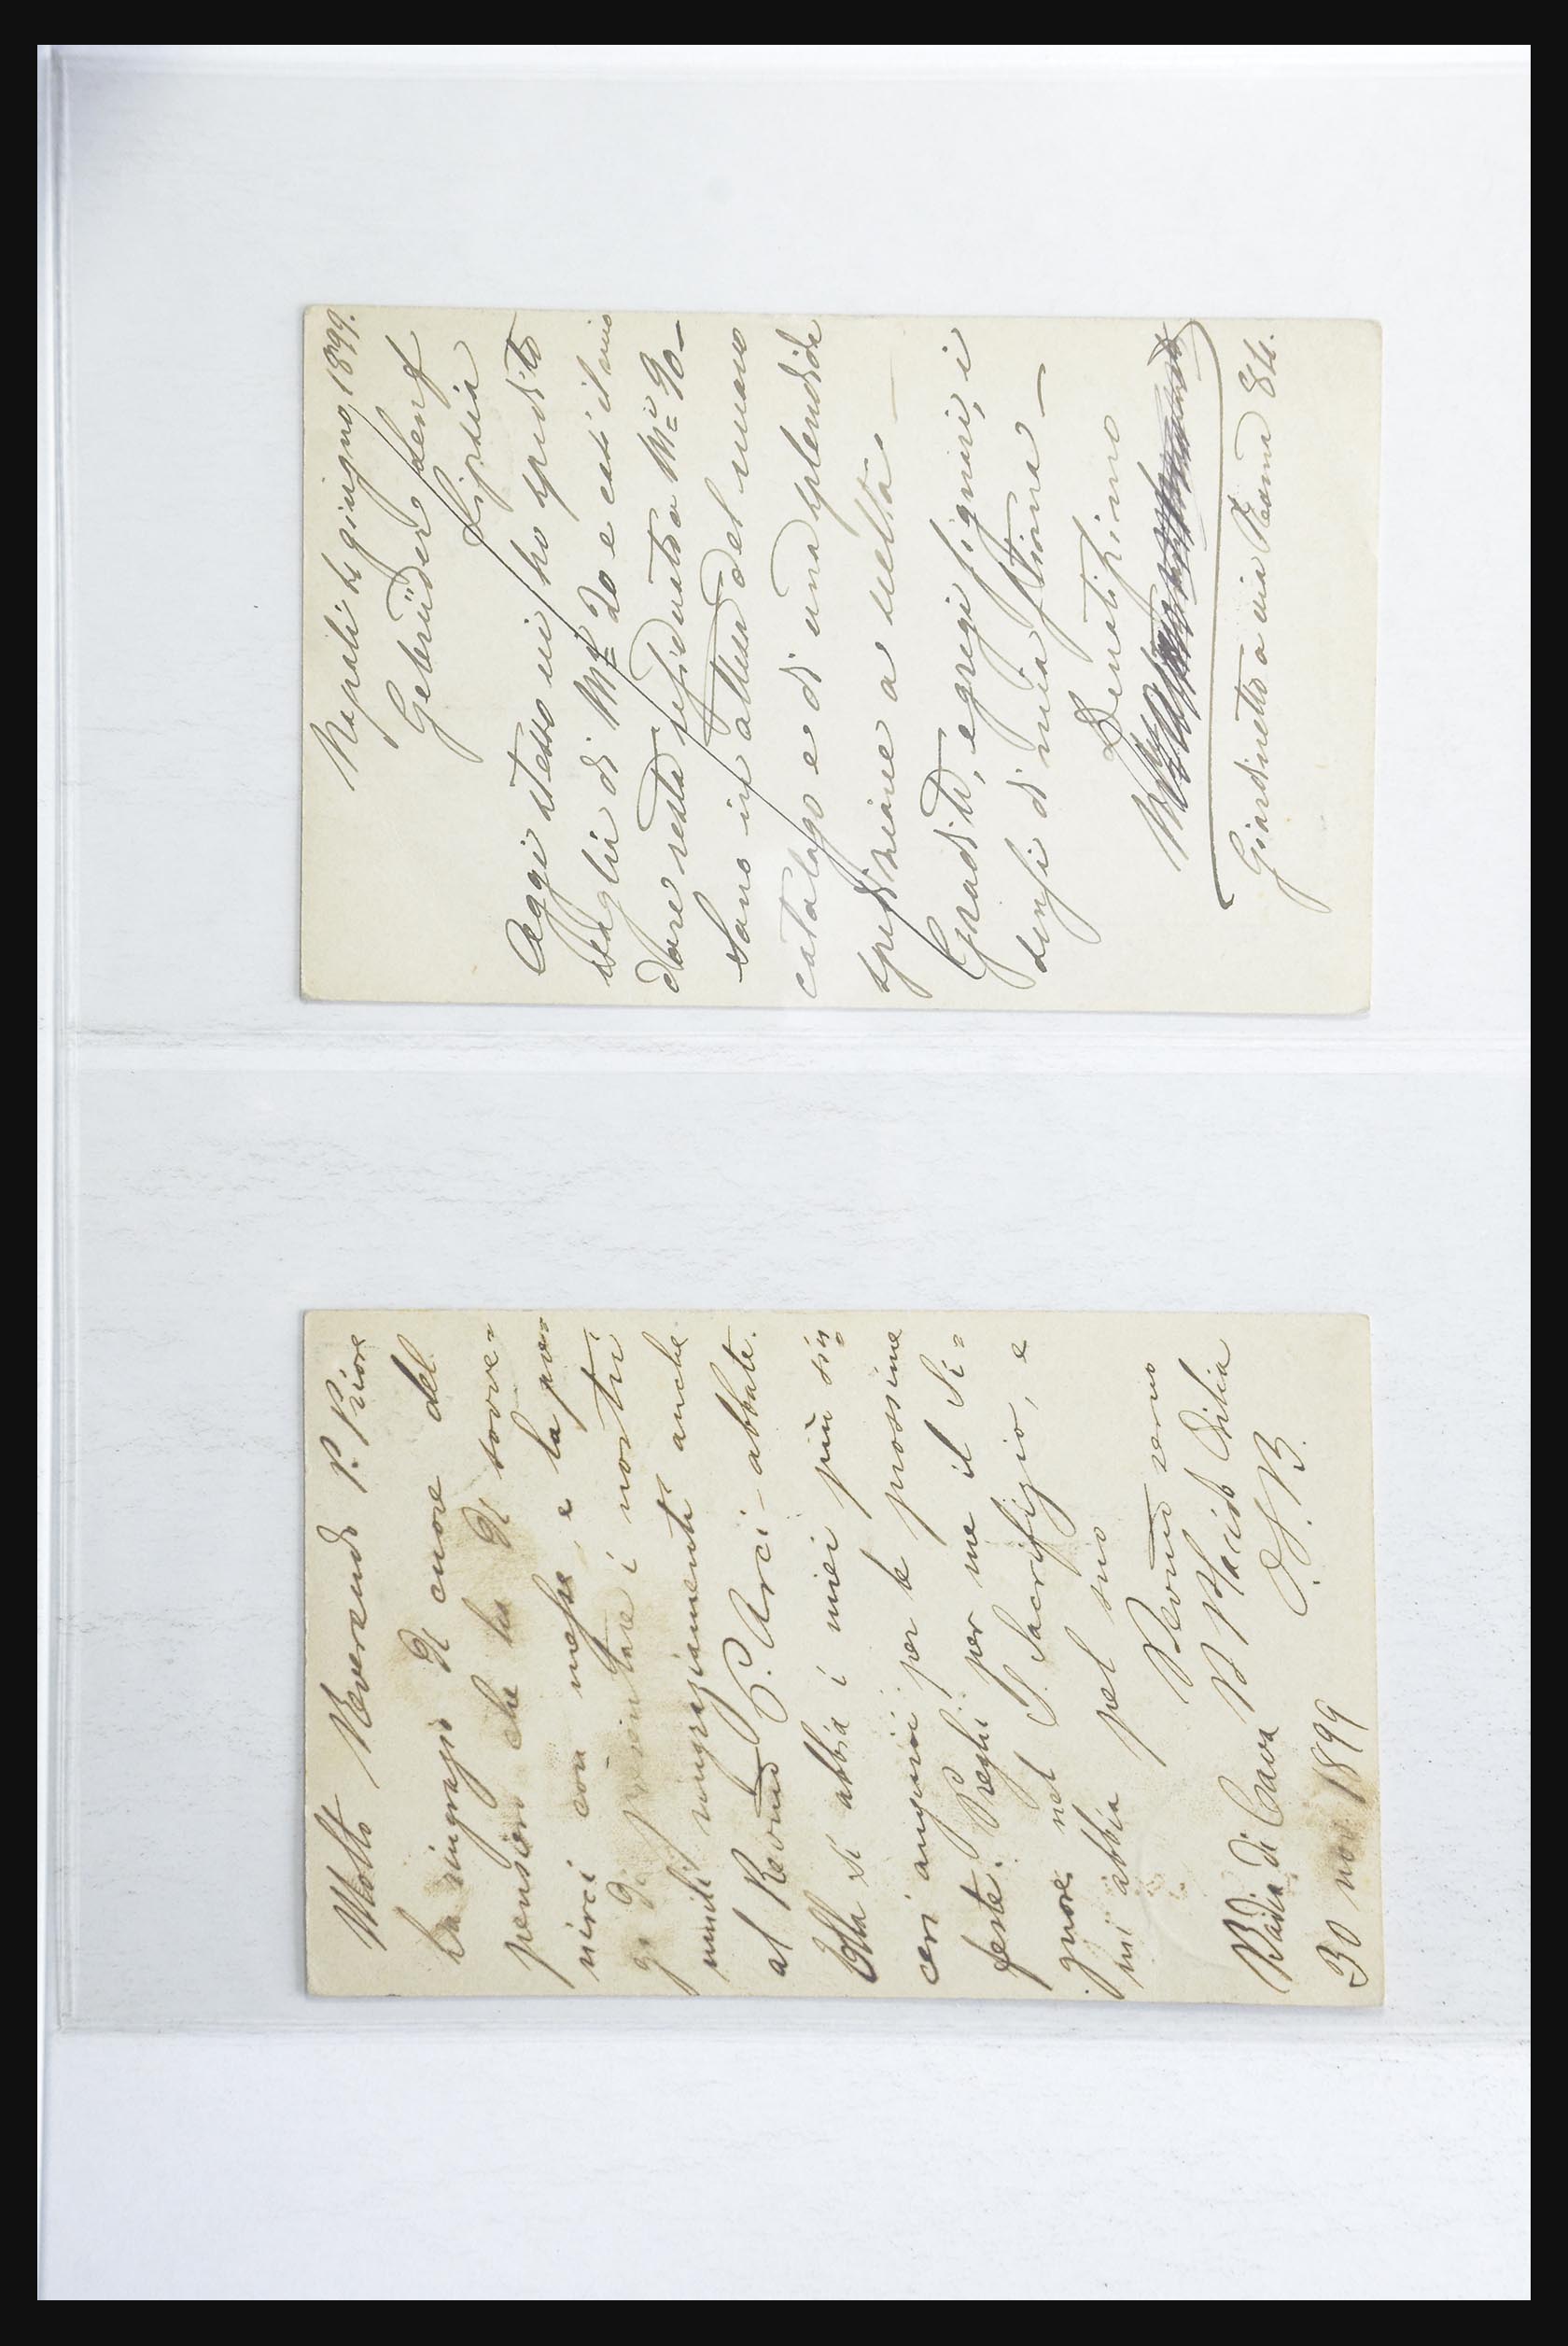 Napoli li giugno, 1899.
Gebrüder Senf
Lipsia
Oggi stesso vi ho spedito
vaglia di M 20 e così il mio
dare resta residuato a M 90 —
Sono in attesa del nuovo
catalogo e di una splendida
spedizione a scelta. —
Gradite, egregi signori, i
sensi di mia stima —
Devotissimo
Giardinetto a via Roma 84.
Molto Reverendo P. Priore
La ringrazio di cuore del
pensiero che ha di sovve-
nirci con messe, e la pre-
go di presentare i nostri
umili ringraziamenti anche
al Revmo P. Arci-abbate.
Ella si abbia i miei più sin=
ceri auguri per le prossime
feste. Preghi per me il Si=
gnore nel S. Sacrifizio, e
mi abbia pel suo
Devmo servo
Badia di Cava D Placido
O.S.B.
30 nov 1899